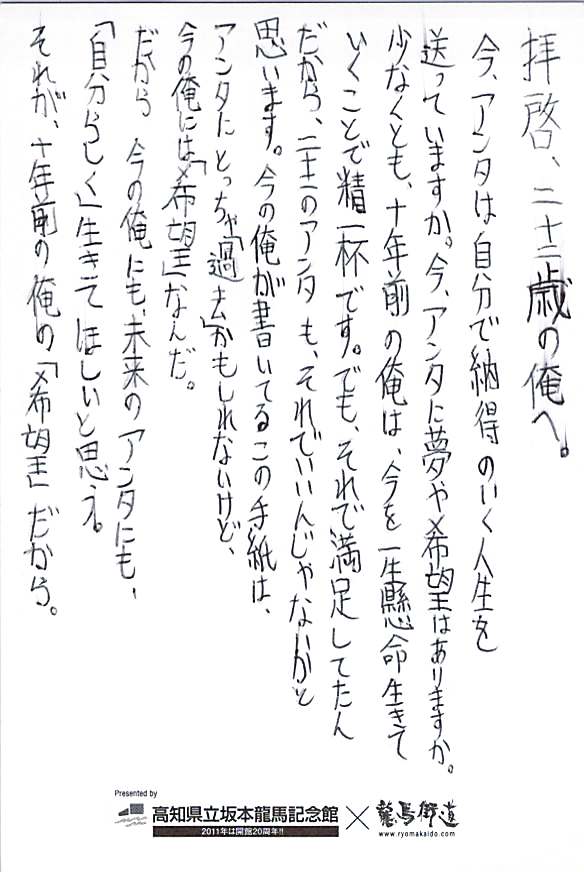 拝啓、二十二歳の俺へ。
今、アンタは自分で納得のいく人生を
送っていますか。今、アンタに夢や希望はありますか。
少なくとも、十年前の俺は、今を一生懸命生きて
いくことで精一杯です。でも、それで満足してたん
だから、二十二のアンタも、それでいいんじゃないかと
思います。今の俺が書いてるこの手紙は、
アンタにとっちゃ「過去」かもしれないけど、
今の俺には「希望」なんだ。
だから 今の俺にも、未来のアンタにも、
「自分らしく」生きてほしいと思う。
それが、十年前の俺の「希望」だから。
Presented by
高知県立坂本龍馬記念館 × 龍馬街道
2011年は開館20周年!!
www.ryomakaido.com